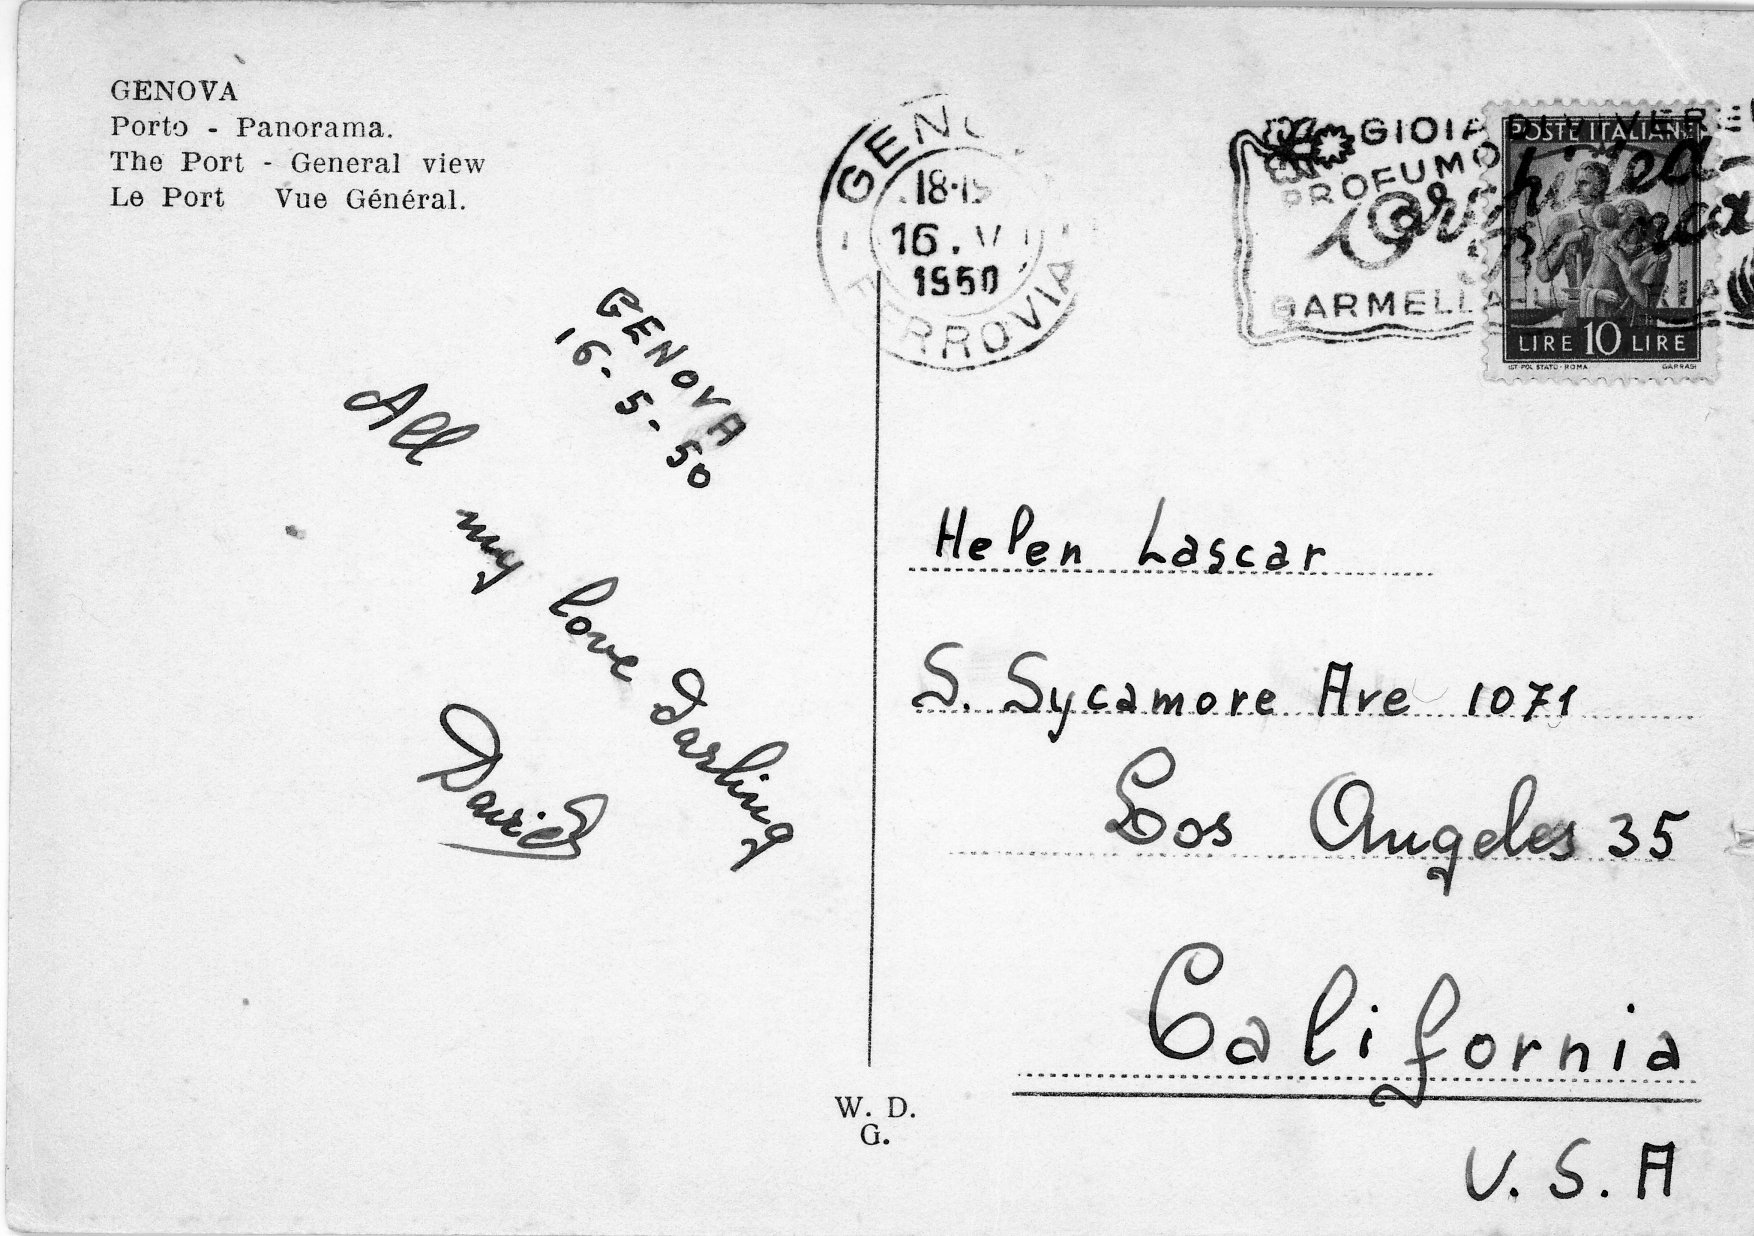 GENOVA
Porto - Panorama.
The Port - General view
Le Port Vue Général.
GENO
18-19
16. V
1950
FERROVIA
GIOIA DI VIVERE
PROFUMO
POSTE ITALIANE
LIRE 10 LIRE
IST. POL. STATO - ROMA GARRASI
GENOVA
16-5-50
All
my
love Darling
David
Helen Lascar
S. Sycamore Ave 1071
Los Angeles 35
California
U. S. A
W. D.
G.